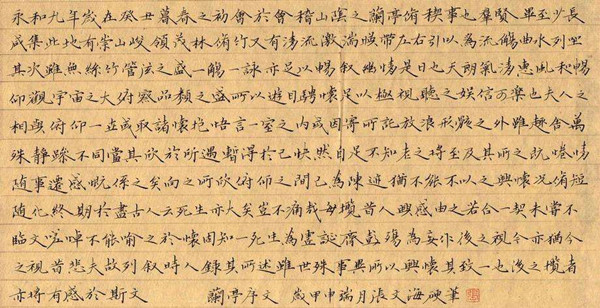 永和九年歲在癸丑暮春之初會於會稽山陰之蘭亭脩稧事也群賢畢至少長
咸集此地有崇山峻領茂林脩竹又有清流激湍暎帶左右引以為流觴曲水列坐
其次雖無絲竹管弦之盛一觴一詠亦足以暢敘幽情是日也天朗氣清惠風和暢
仰觀宇宙之大俯察品類之盛所以遊目騁懷足以極視聽之娛信可樂也夫人之
相與俯仰一世或取諸懷抱悟言一室之內或因寄所託放浪形骸之外雖趣舍萬
殊靜躁不同當其欣於所遇暫得於己快然自足不知老之將至及其所之既惓情
隨事遷感慨係之矣向之所欣俯仰之間已為陳迹猶不能不以之興懷況脩短
隨化終期於盡古人云死生亦大矣豈不痛哉每攬昔人興感由之若合一契未嘗不
臨文嗟悼不能喻之於懷固知一死生為虛誕齊彭殤為妄作後之視今亦猶今
之視昔悲夫故列敘時人錄其所述雖世殊事異所以興懷其致一也後之攬者
亦將有感於斯文 蘭亭序文 歲甲申瑞月張文海硬筆